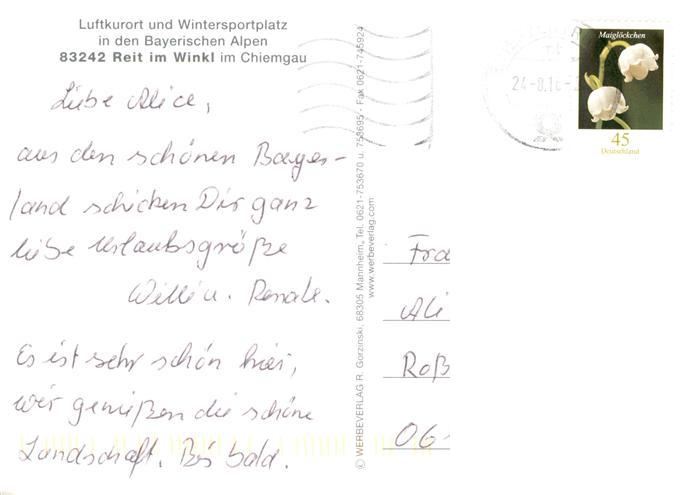 Luftkurort und Wintersportplatz
in den Bayerischen Alpen
83242 Reit im Winkl im Chiemgau
Liebe Alice,
aus den schönen Bayer-
land schicken Dir ganz
liebe Urlaubsgrüße
Willi u. Renate.
Es ist sehr schön hier,
wir genießen die schöne
Landschaft. Bis bald.
© WERBEVERLAG R. Gorzinski, 68305 Mannheim, Tel. 0621-753670 u. 753695 - Fax 0621-745924
www.werbeverlag.com
Maiglöckchen
45
Deutschland
Fra
Ali
Roß
06